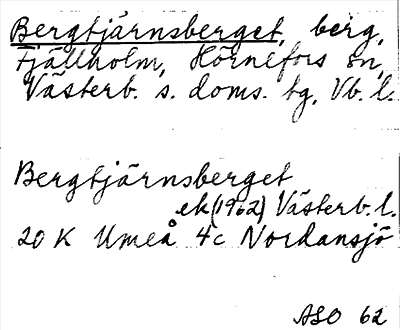 Bergtjärnsberget, berg,
Fjällholm, Hörnefors sn,
Västerb. s. doms. tg, Vb. l.
Bergtjärnsberget
ek (1962) Västerb. l.
20 K Umeå 4c Nordansjö
ASO 62